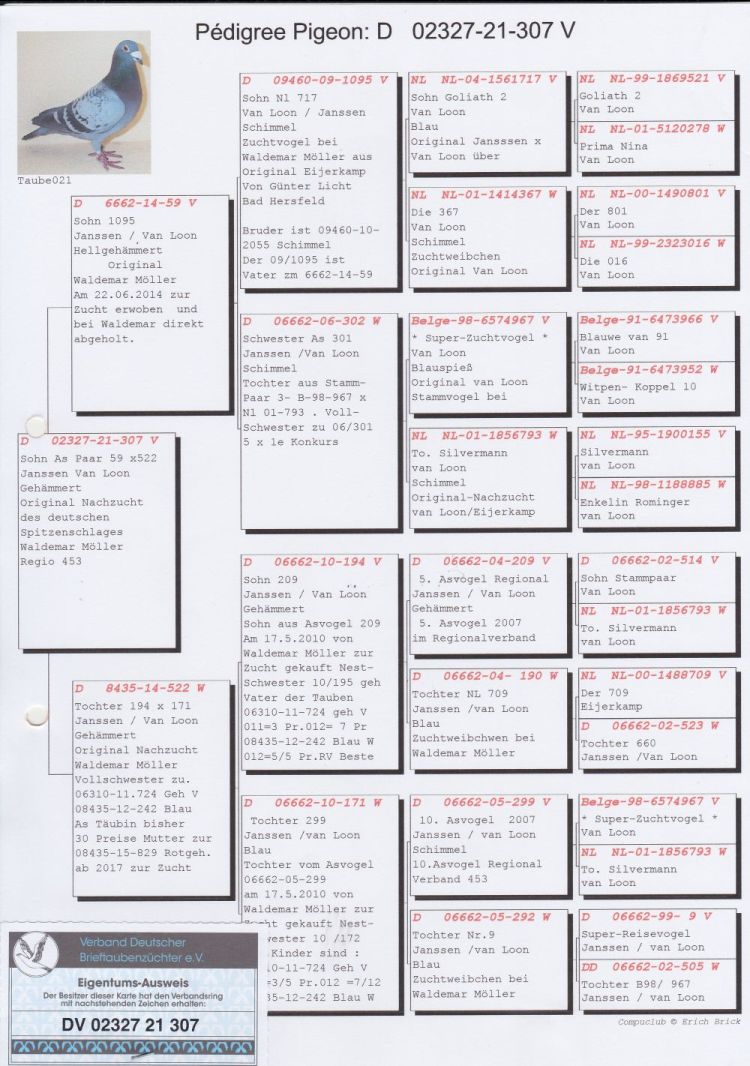 Pédigree Pigeon: D 02327-21-307 V
Taube021
D 02327-21-307 V
Sohn As Paar 59 x522
Janssen Van Loon
Gehämmert
Original Nachzucht
des deutschen
Spitzenschlages
Waldemar Möller
Regio 453
D 6662-14-59 V
Sohn 1095
Janssen / Van Loon
Hellgehämmert
Original
Waldemar Möller
Am 22.06.2014 zur
Zucht erwoben und
bei Waldemar direkt
abgeholt.
D 8435-14-522 W
Tochter 194 x 171
Janssen / Van Loon
Gehämmert
Original Nachzucht
Waldemar Möller
Vollschwester zu.
06310-11.724 Geh V
08435-12-242 Blau
As Täubin bisher
30 Preise Mutter zur
08435-15-829 Rotgeh.
ab 2017 zur Zucht
D 09460-09-1095 V
Sohn Nl 717
Van Loon / Janssen
Schimmel
Zuchtvogel bei
Waldemar Möller aus
Original Eijerkamp
Von Günter Licht
Bad Hersfeld
Bruder ist 09460-10-
2055 Schimmel
Der 09/1095 ist
Vater zm 6662-14-59
D 06662-06-302 W
Schwester As 301
Janssen /Van Loon
Schimmel
Tochter aus Stamm-
Paar 3- B-98-967 x
Nl 01-793 . Voll-
Schwester zu 06/301
5 x 1e Konkurs
D 06662-10-194 V
Sohn 209
Janssen / Van Loon
Gehämmert
Sohn aus Asvogel 209
Am 17.5.2010 von
Waldemar Möller zur
Zucht gekauft Nest-
Schwester 10/195 geh
Vater der Tauben
06310-11-724 geh V
011=3 Pr.012= 7 Pr
08435-12-242 Blau W
012=5/5 Pr.RV Beste
D 06662-10-171 W
Tochter 299
Janssen /van Loon
Blau
Tochter vom Asvogel
06662-05-299
am 17.5.2010 von
Waldemar Möller zur
gekauft Nest-
wester 10 /172
Kinder sind :
10-11-724 Geh V
=3/5 Pr.012 =7/12
35-12-242 Blau W
NL NL-04-1561717 V
Sohn Goliath 2
Van Loon
Blau
Original Jansssen x
Van Loon über
NL NL-01-1414367 W
Die 367
Van Loon
Schimmel
Zuchtweibchen
Original Van Loon
Belge-98-6574967 V
* Super-Zuchtvogel *
Van Loon
Blauspieß
Original van Loon
Stammvogel bei
NL NL-01-1856793 W
To. Silvermann
van Loon
Schimmel
Original-Nachzucht
van Loon/Eijerkamp
D 06662-04-209 V
5. Asvögel Regional
Janssen / Van Loon
Gehämmert
5. Asvogel 2007
im Regionalverband
D 06662-04- 190 W
Tochter NL 709
Janssen /van Loon
Blau
Zuchtweibchwen bei
Waldemar Möller
D 06662-05-299 V
10. Asvogel 2007
Janssen / van Loon
Schimmel
10.Asvogel Regional
Verband 453
D 06662-05-292 W
Tochter Nr.9
Janssen /van Loon
Blau
Zuchtweibchen bei
Waldemar Möller
NL NL-99-1869521 V
Goliath 2
Van Loon
NL NL-01-5120278 W
Prima Nina
Van Loon
NL NL-00-1490801 V
Der 801
Van Loon
NL NL-99-2323016 W
Die 016
Van Loon
Belge-91-6473966 V
Blauwe van 91
Van Loon
Belge-91-6473952 W
Witpen- Koppel 10
Van Loon
NL NL-95-1900155 V
Silvermann
van Loon
NL NL-98-1188885 W
Enkelin Rominger
van Loon
D 06662-02-514 V
Sohn Stammpaar
Van Loon
NL NL-01-1856793 W
To. Silvermann
van Loon
NL NL-00-1488709 V
Der 709
Eijerkamp
D 06662-02-523 W
Tochter 660
Janssen /Van Loon
Belge-98-6574967 V
* Super-Zuchtvogel *
Van Loon
NL NL-01-1856793 W
To. Silvermann
van Loon
D 06662-99- 9 V
Super-Reisevogel
Janssen / van Loon
DD 06662-02-505 W
Tochter B98/ 967
Janssen / Van Loon
Compuclub © Erich Brick
Verband Deutscher
Brieftaubenzüchter e.V.
Eigentums-Ausweis
Der Besitzer dieser Karte hat den Verbandsring
mit nachstehenden Zeichen erhalten:
DV 02327 21 307